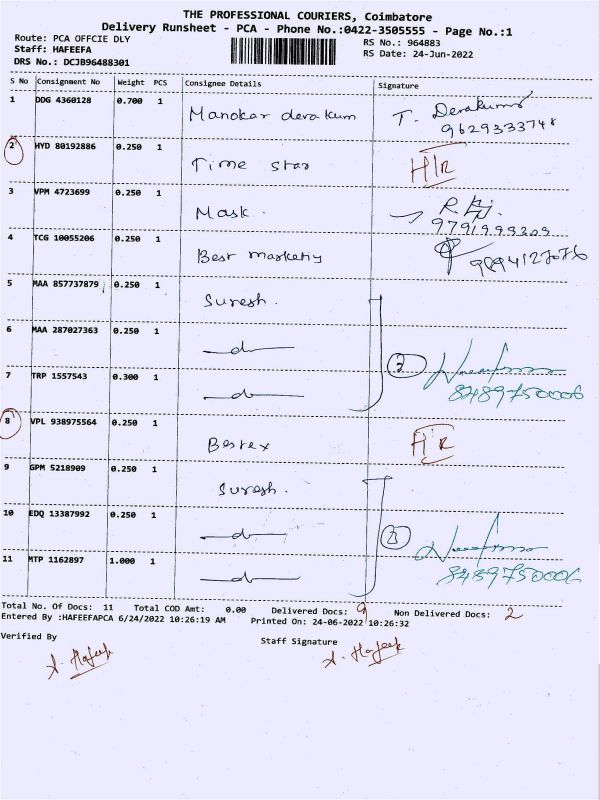 THE PROFESSIONAL COURIERS, Coimbatore
Delivery Runsheet - PCA - Phone No.:0422-3505555 - Page No.:1
Route: PCA OFFCIE DLY RS No.: 964883
Staff: HAFEEFA RS Date: 24-Jun-2022
DRS No.: DCJB96488301
S No Consignment No Weight PCS Consignee Details Signature
1 DDG 4360128 0.700 1 Manokar derakum T. Derakum
9629333748
2 HYD 80192886 0.250 1 Time star HIR
3 VPM 4723699 0.250 1 Mask.
4 TCG 10055206 0.250 1 Best marketiy
5 MAA 857737879 0.250 1 Suresh.
6 MAA 287027363 0.250 1 —do—
7 TRP 1557543 0.300 1 —do— 8489750006
8 VPL 938975564 0.250 1 Bestex HIR
9 GPM 5218909 0.250 1 Suresh.
10 EDQ 13387992 0.250 1 —do—
11 MTP 1162897 1.000 1 —do— 8489750006
Total No. Of Docs: 11 Total COD Amt: 0.00 Delivered Docs: 9 Non Delivered Docs: 2
Entered By :HAFEEFAPCA 6/24/2022 10:26:19 AM Printed On: 24-06-2022 10:26:32
Verified By Staff Signature
A. Hafeef A. Hafeef